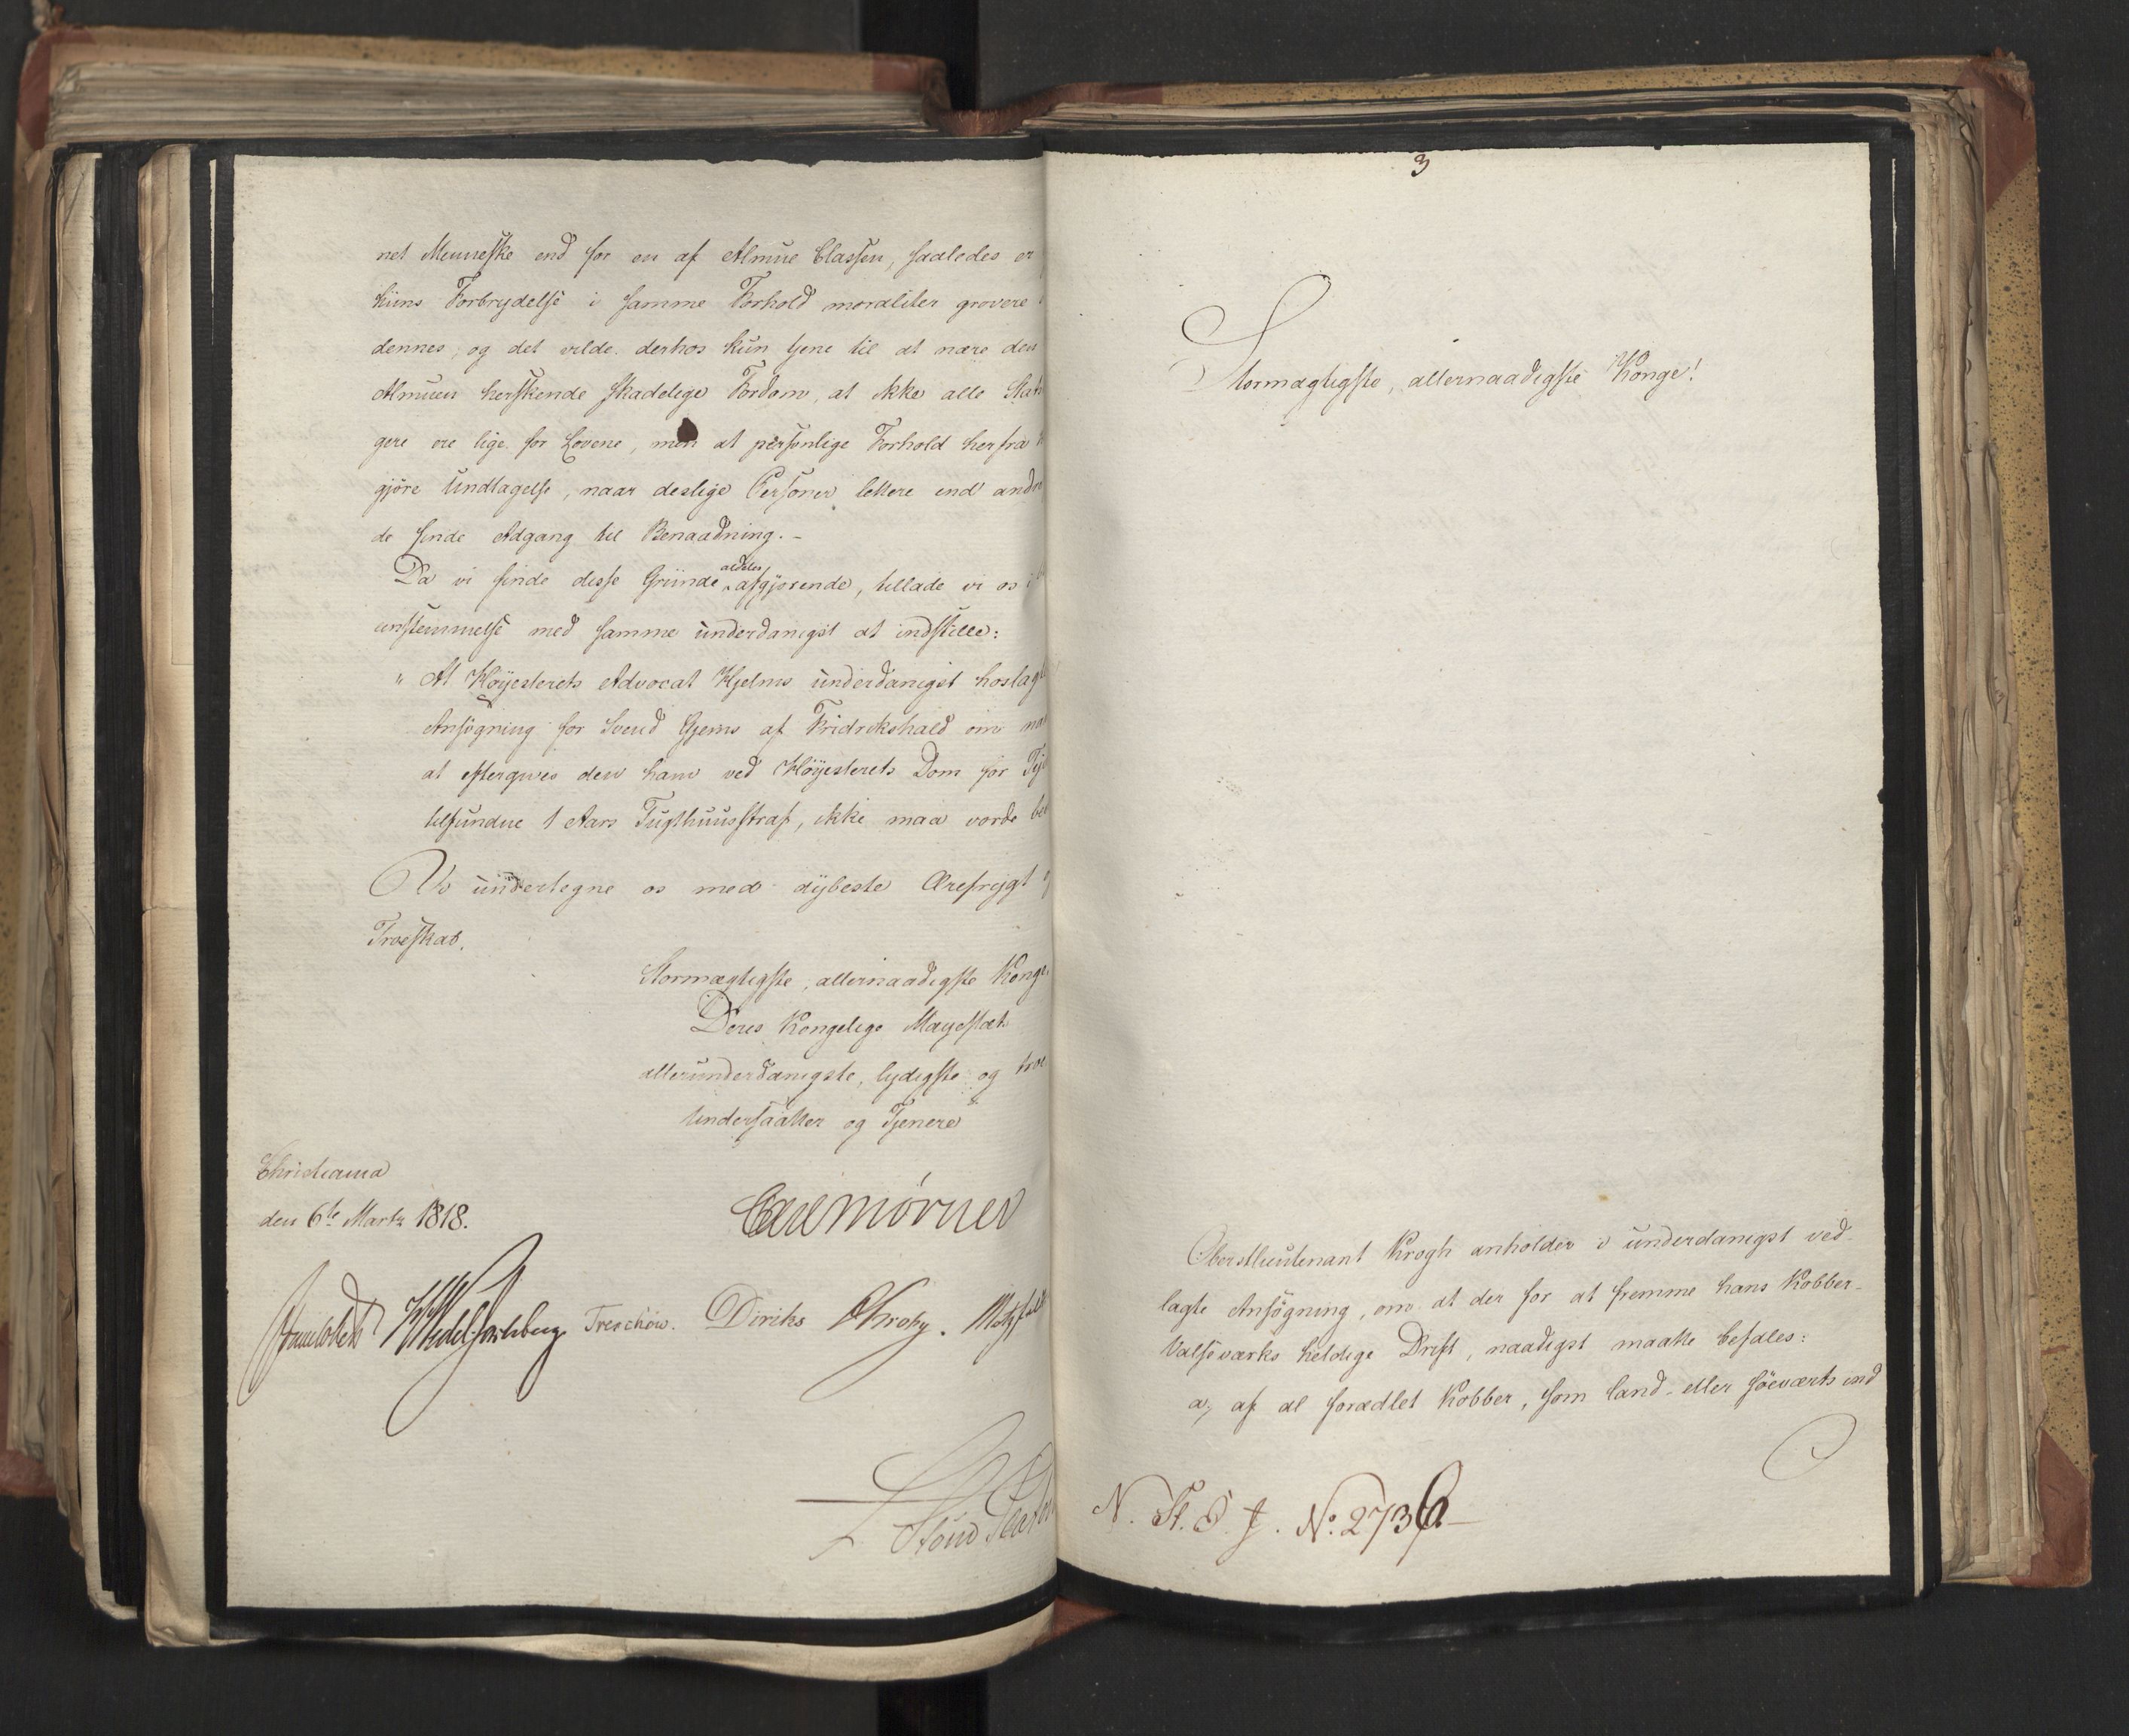 net Menneske end for en af Almue Classen, saaledes er
hiins Forbrydelse i samme Forhold moraliter grovere
dennes, og det vilde derhos kun tjene til at nære den
Almuen herskende skadelige Fordom, at ikke alle
gere ere lige for Lovene, men at personlige Forhold herfra
gjöre Undtagelse, naar deslige Personer lettere end andre
de finde Adgang til Benaadning. -
Da vi finde disse Grunde aldeles afgjorende, tillade vi os i
eensstemmelse med samme underdanigst at indstille:
" At Höyesterets Advocat Hjelms underdanigst hoslagte
Ansögning for Svend Gjems af Fridrikshald om
at eftergives den ham ved Höyesterets Dom for
tilfundne 1 Aars Tugthuusstraf, ikke maa vorde
Vi undertegne os med dybeste Ærefrygt
Troeskab.
Stormægtigste, allernaadigste Konge
Deres Kongelige Majestæts
allerunderdanigste, lydigste og troe
Undersaatter og Tjenere
Christiania
den 6te Marts 1818.
Carl Mörner
Sommerhielm HWedel Jarlsberg Treschow. Diriks Krohg. Motzfeldt
3
Stormægtigste, allernaadigste Konge!
Oberstlieutenant Krogh anholder i underdanigst ved-
lagte Ansögning, om at der for at fremme hans Kobber-
Valseværks heldige Drift, naadigst maatte befales:
a, af al forædlet Kobber, som land- eller söeværts ind
N. St. S. J. No. 2736.